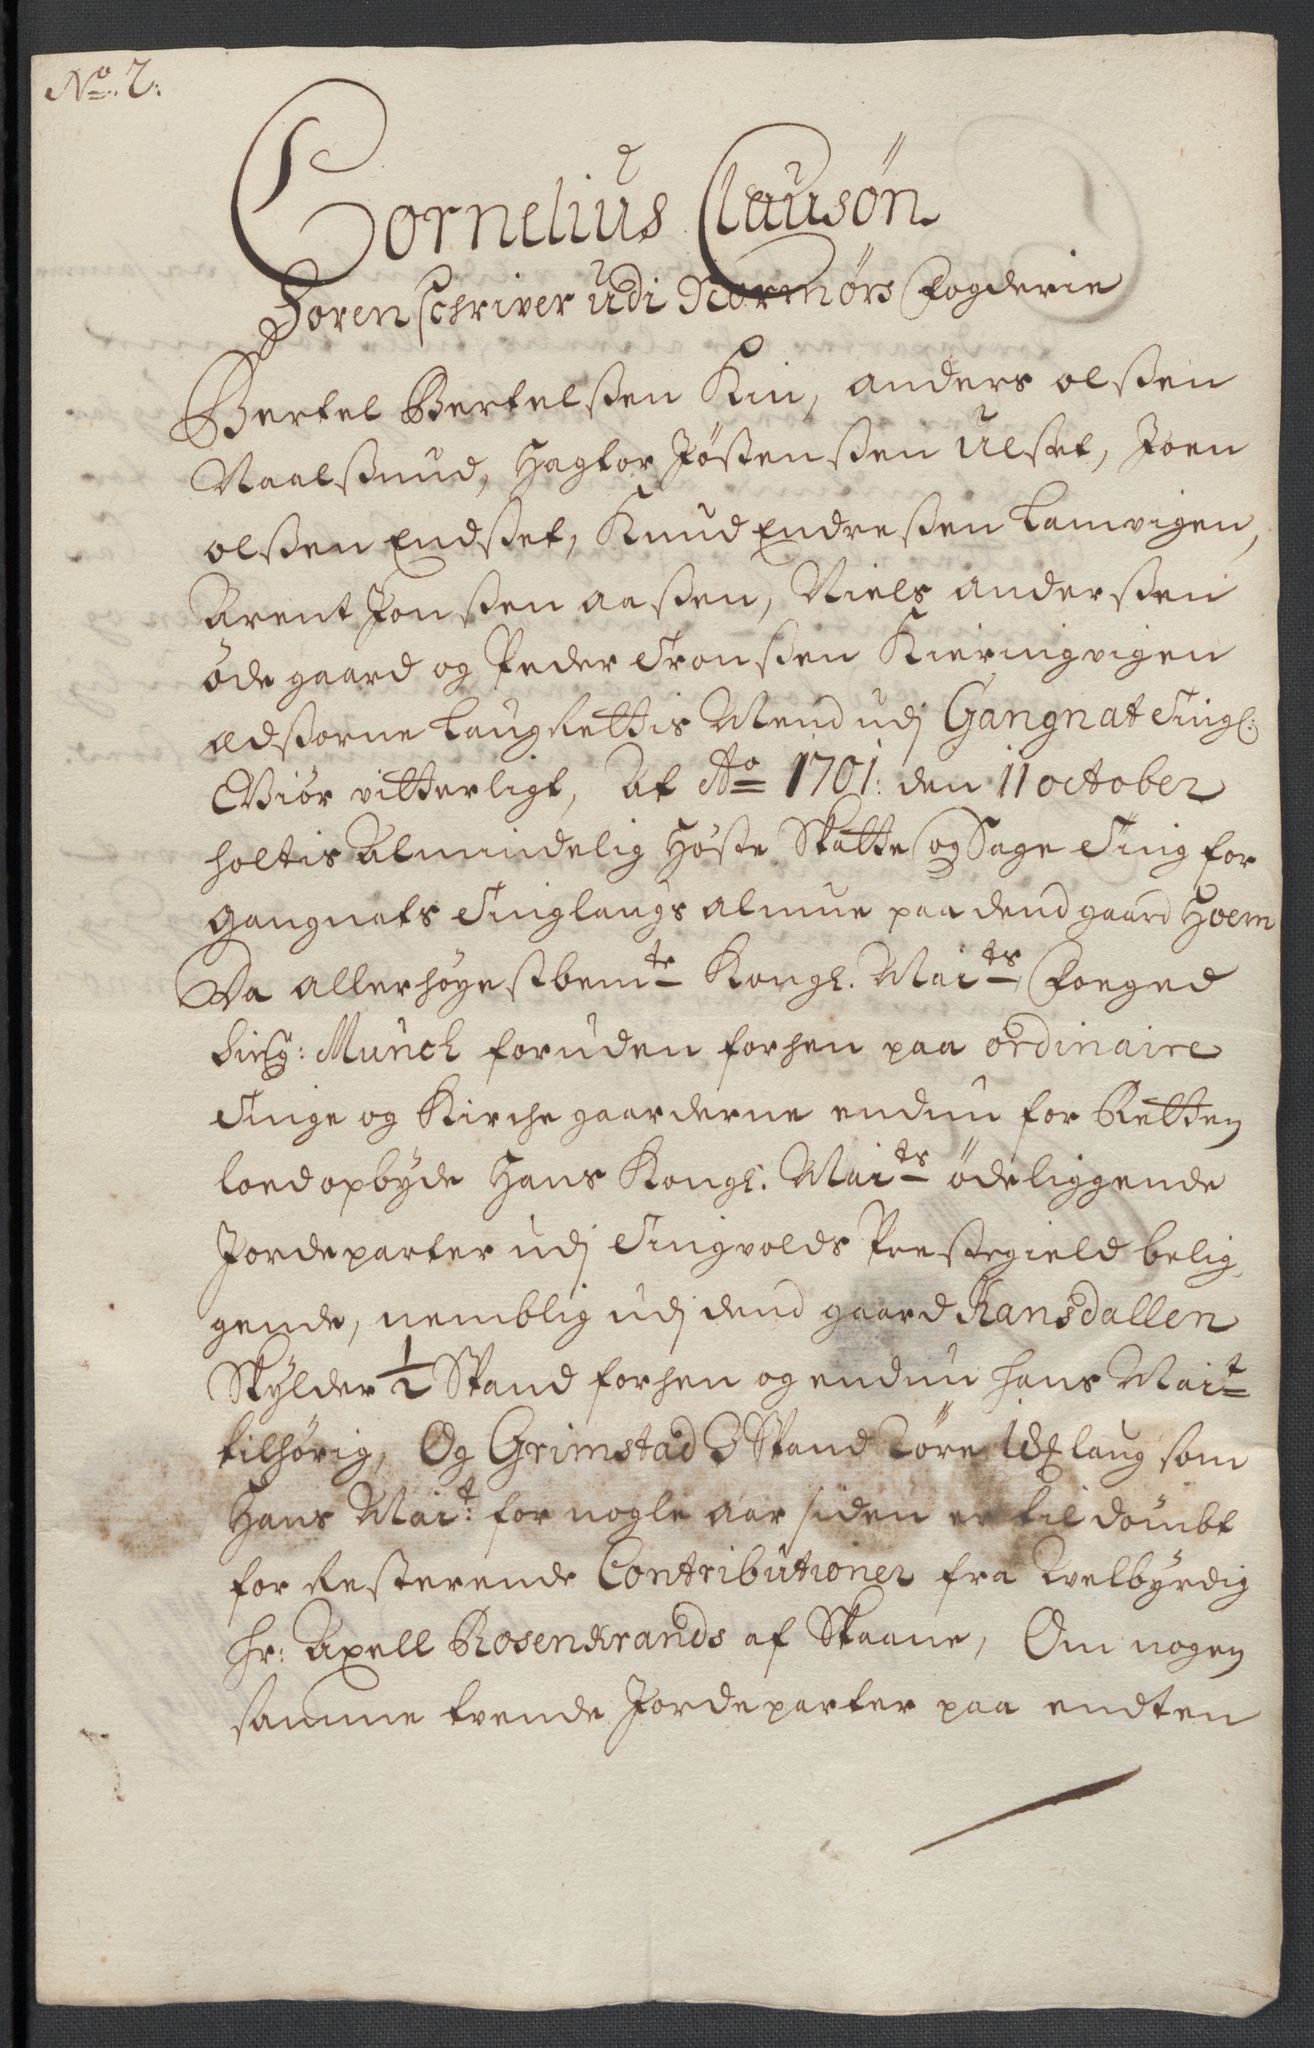 No: 7:
Cornelius Clausøn
Soren schriver udi Normørs Fogderie
Bertel Bertelßen Hiu, anders olßen
Naalsund, Hagtor Jøstenßen Ulset, Joen
olßen Endset, Knud Endreßen Lamvigen,
Arent Jonßen aaßen, Niels anderßen
øde gaard og Peder Tronßen Kieringvigen
edsorne LaugRettis Mend udj Gangnat Tingl:
Giør vitterligt, At Ao 1701: den 11 october
holtis Almindelig Høste Skatte og Sage Ting for
Gangnats Tinglaugs almue paa dend gaard Hoem
Da allerhøyestbemte Kongl. Maits Foeged
Sinsg: Munch foruden forhen paa ordinaire
Tinge og Kirche gaarderne endnu for Retten
loed opbyde Hans Kongl. Maits ødeliggende
Jordeparter udj Tingvolds Prestegield belig,
gende, nemblig udj dend gaard Ransdallen
Skylder 1/2 Spand forhen og endnu hans Mait
tilhørig, Og Grimstad 2 Spand Löre laug som
Hans Mait: for nogle aar siden er til dømbt
for Resterende Contributioner fra Velbyrdig
hr: Axell Rosenkrands af Skaane, Om nogen
samme tvende Jordeparter paa endten